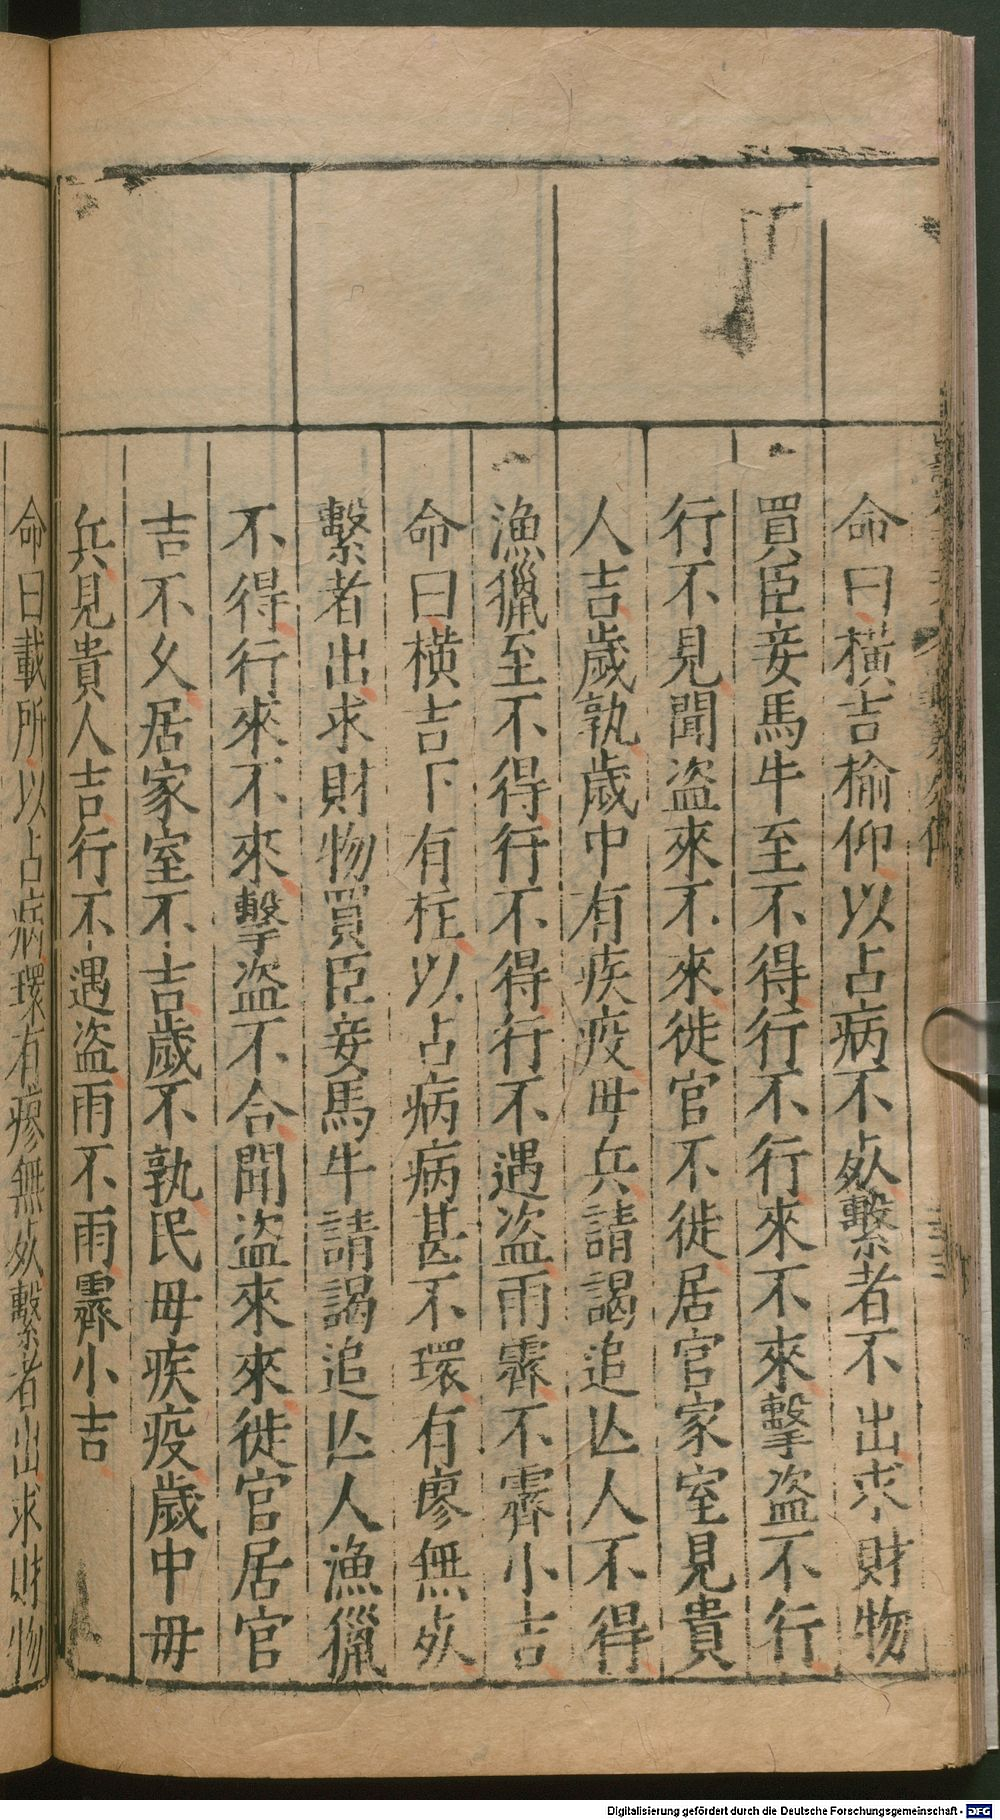 命曰橫吉榆仰以占病不𣦸繫者不出求財物
買臣妾馬牛至不得行不行來不來擊盜不行
行不見聞盜來不來徙官不徙居官家室見貴
人吉歲孰歲中有疾疫毋兵請謁追亾人不得
漁獵至不得行不得行不遇盜雨霽不霽小吉
命曰橫吉下有柱以占病病甚不環有廖無𣦸
繫者出求財物買臣妾馬牛請謁追亾人漁獵
不得行來不來擊盜不合聞盜來來徙官居官
吉不久居家室不吉歲不孰民毋疾疫歲中毋
兵見貴人吉行不遇盜雨不雨霽小吉
命曰載所以占病環有瘳無𣦸繫者出求財物
Digitalisierung gefördert durch die Deutsche Forschungsgemeinschaft - DFG